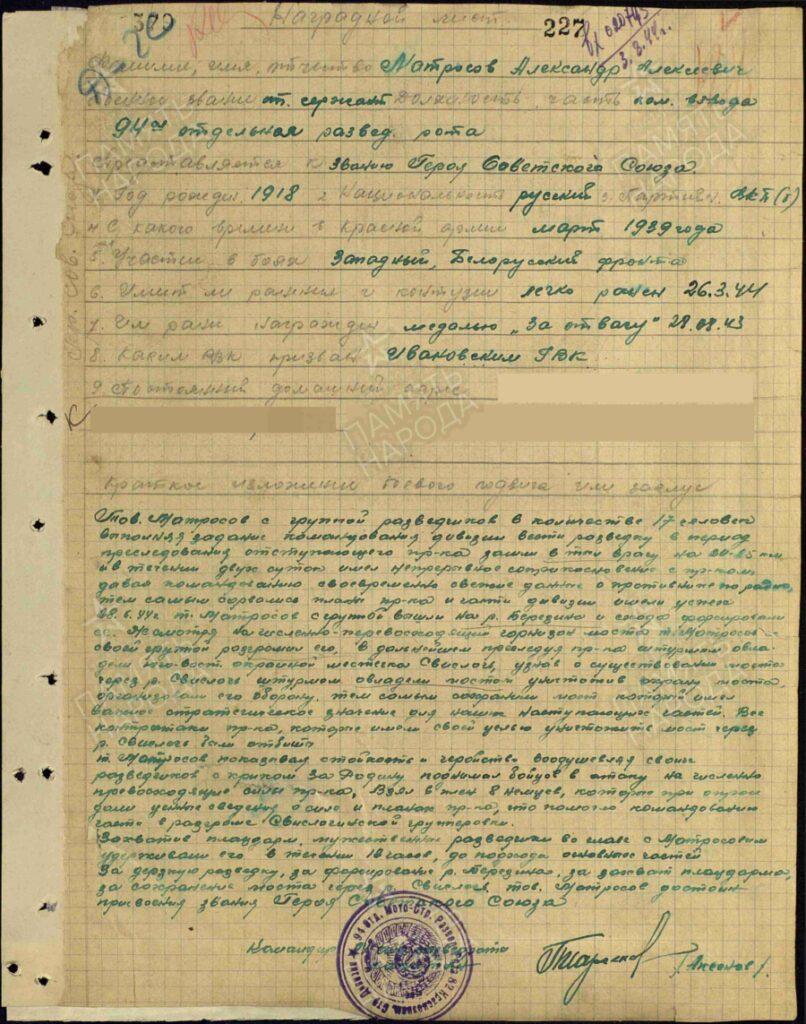 Наградной лист
227
3.8.44г.
Фамилия, имя, отчество Матросов Александр Алексеевич
военное звание ст. сержант Должность, часть ком. взвода
94ая отдельная развед. рота
Представляется к званию Героя Советского Союза.
1. Год рожден. 1918 2. Национальность русский 3. Партийн. ВКП(б)
4. С какого времени в Красной армии март 1939 года
5. Участие в боях Западный, Белорусский фронта
6. Имеет ли ранения и контузии легко ранен 26.3.44
7. Чем ранее награжден медалью „За отвагу" 28.08.43
8. Каким РВК призван Ивановским ГВК
9. Постоянный домашний адрес
Краткое изложение боевого подвига или заслуг
Тов. Матросов с группой разведчиков в количестве 17 человек
выполняя задание командования дивизии вести разведку в период
преследования отступающего пр-ка зашли в тыл врагу на 20-25 км
и в течении двух суток имел непрерывное соприкосновение с пр-ком
давая командованию своевременно свежие данные о противнике по радио,
тем самым сорвались планы пр-ка и части дивизии имели успех
28.6.44г. т. Матросов с группой вышли на р. Березина и с хода форсировали
ее. Несмотря на численно-превосходящий гарнизон моста т. Матросов
своей группой разгромил его, в дальнейшем преследуя пр-ка штурмом овла-
дели юго-вост. окраиной местечка Свислочь, узнав о существовании моста
через р. Свислочь штурмом овладели мостом уничтожив охрану моста,
организовали его оборону, тем самым сохранили мост который имел
важное стратегическое значение для наших наступающих частей. Все
контратаки пр-ка, которые имели своей целью уничтожить мост через
р. Свислочь были отбиты
т. Матросов показывая стойкость и геройство воодушевляя своих
разведчиков с криком За Родину поднимал бойцов в атаку на численно
превосходящие силы пр-ка, взял в плен 8 немцев, которые при опросе
дали ценные сведения о силе и планах пр-ка, что помогло командованию
части в разгроме Свислочинской группировки.
Захватив плацдарм, мужественные разведчики во главе с Матросовым
удерживали его в течении 18 часов, до подхода основных частей
За дерзкую разведку, за форсирование р. Березина, за захват плацдарма,
за сохранение моста через р. Свислочь, тов. Матросов достоин
присвоения звания Героя Советского Союза
Командир
94 отд. Мото-Стр. Развед. рота
Стр. Дивизии
/Аксенов/.
ПАМЯТЬ НАРОДА